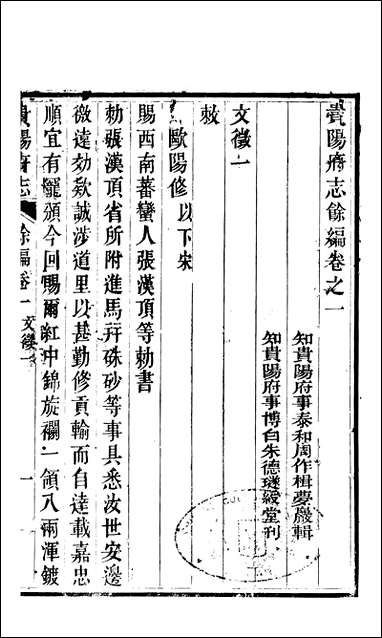 貴陽府志餘編卷之一
知貴陽府事泰和周作楫夢巖輯
知貴陽府事博白朱德璲緩堂刋
文徵一
敕
歐陽修以下宋
賜西南蕃蠻人張漢頂等勅書
勅張漢頂省所附進馬幵硃砂等事具悉汝世安邊
徼達効欵誠涉道里以甚勤修貢輸而自達載嘉忠
順宜有寵頒今回賜爾紅沖錦旋襴一領八兩渾鍍
貴陽府志
餘編卷一
文徵一
一